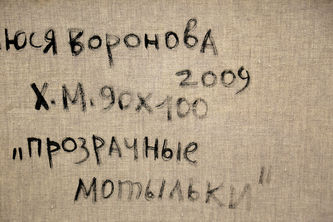 юся воронова
2009
Х.М.90х100
„прозрачные
мотыльки"